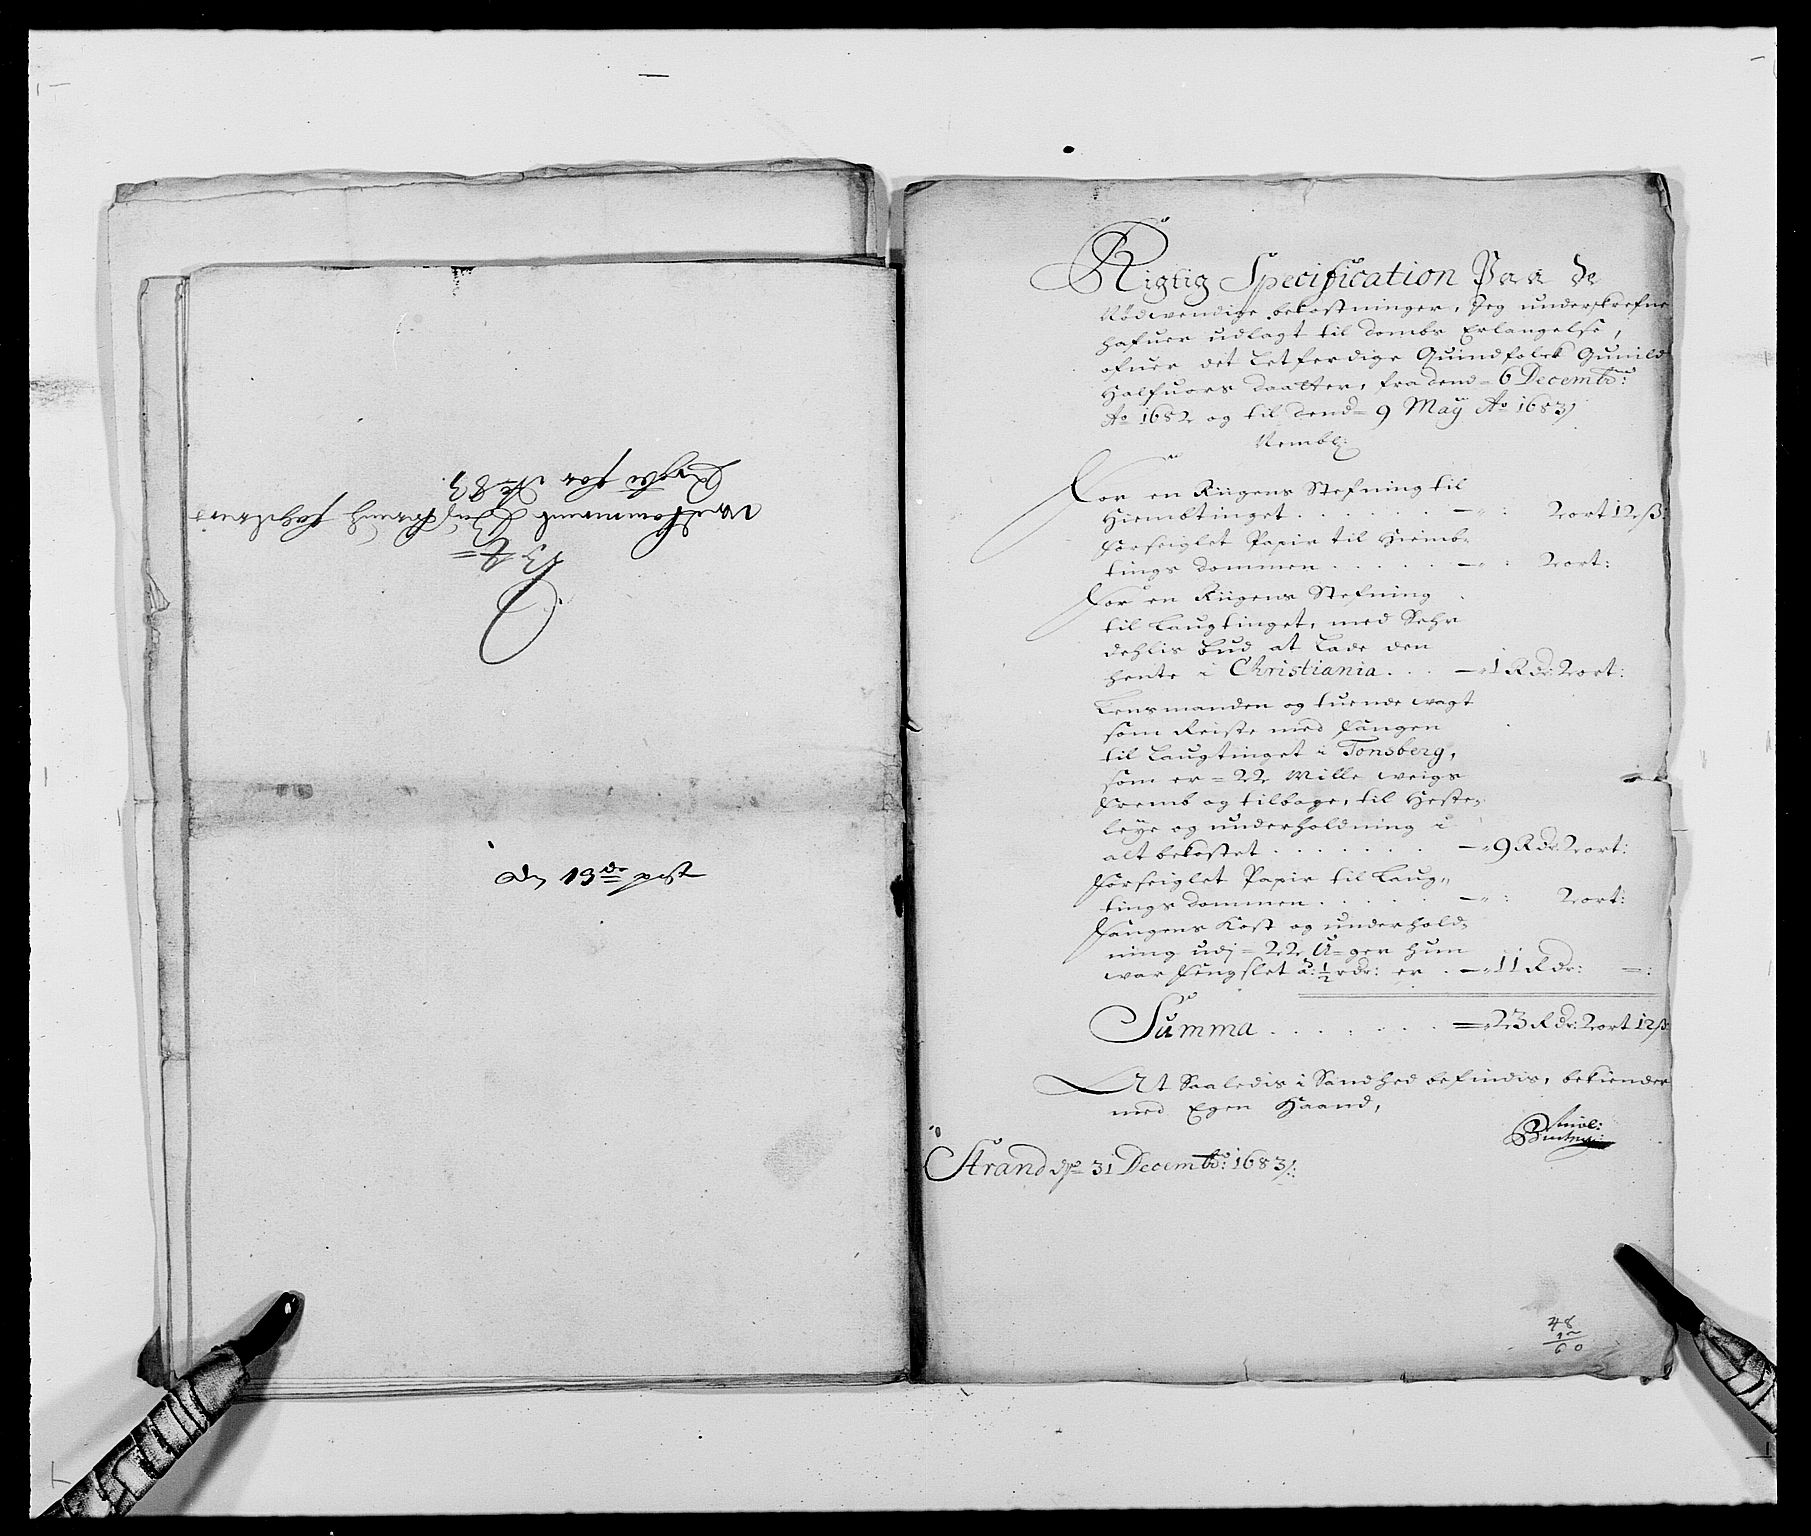 den 13de post
Rigtig Specification Paa de
Nødwendige bekostninger, Jeg underskrefne
hafuer udlagt til dombs Erlangelse,
ofuer det Letferdige Quindfolck Gunild
Halfuors daatter, fra dend 6 Decembr:
Ao 1682 og til dend 9 May Ao 1683/
Nembl:
For en Rigens Stefning til
Hiembtinget . . . . . . . — „ : 2 ort 12 ß:
Forseiglet Papir til Hiemb-
tings dommen . . . . . — „ : 2 ort:
For en Rigens Stefning
til Laugtinget, med
bud at Lade den
hente i Christiania . . . — 1 Rdr: 2 ort:
Lensmanden og tuende wagt
som Reiste med Fangen
til Laugtinget i Tonsberg,
som er = 22 Mille weigs
Fremb og tilbage, til Heste-
leye og underholdning i
alt bekostet . . . . . . . — 9 Rdr: 2 ort:
Forseiglet Papir til Laug-
tings dommen . . . . . — „ : 2 ort:
Fangens Kost og underhold-
ning udj = 22 U=ger hun
war Fengslet a: ½ rdr: er . — 11 Rdr: — :
Summa . . . . . . . = 23 Rdr: 2 ort 12 ß:
At Saaledis i Sandhed befindis, bekiender
med Egen Haand,
Strand dn 31 Decembr: 1683/:
48
12
60